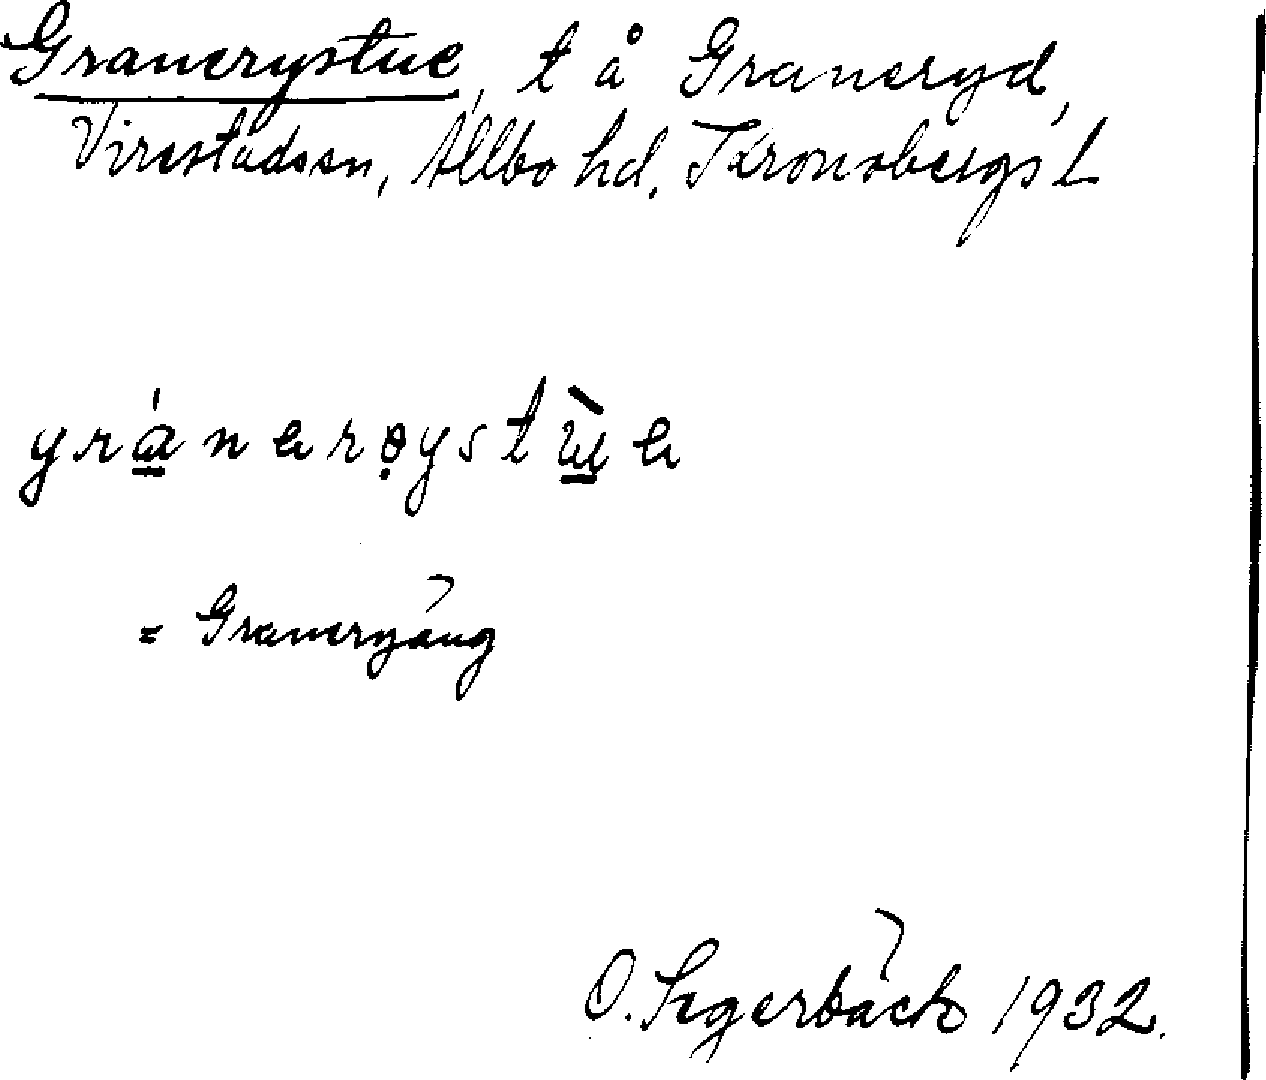 Granerystue, t å Graneryd,
Virestadssn, Allbo hd. Kronobergs L
gránerøystùe
= Graneryäng
O. Segerbäck 1932.